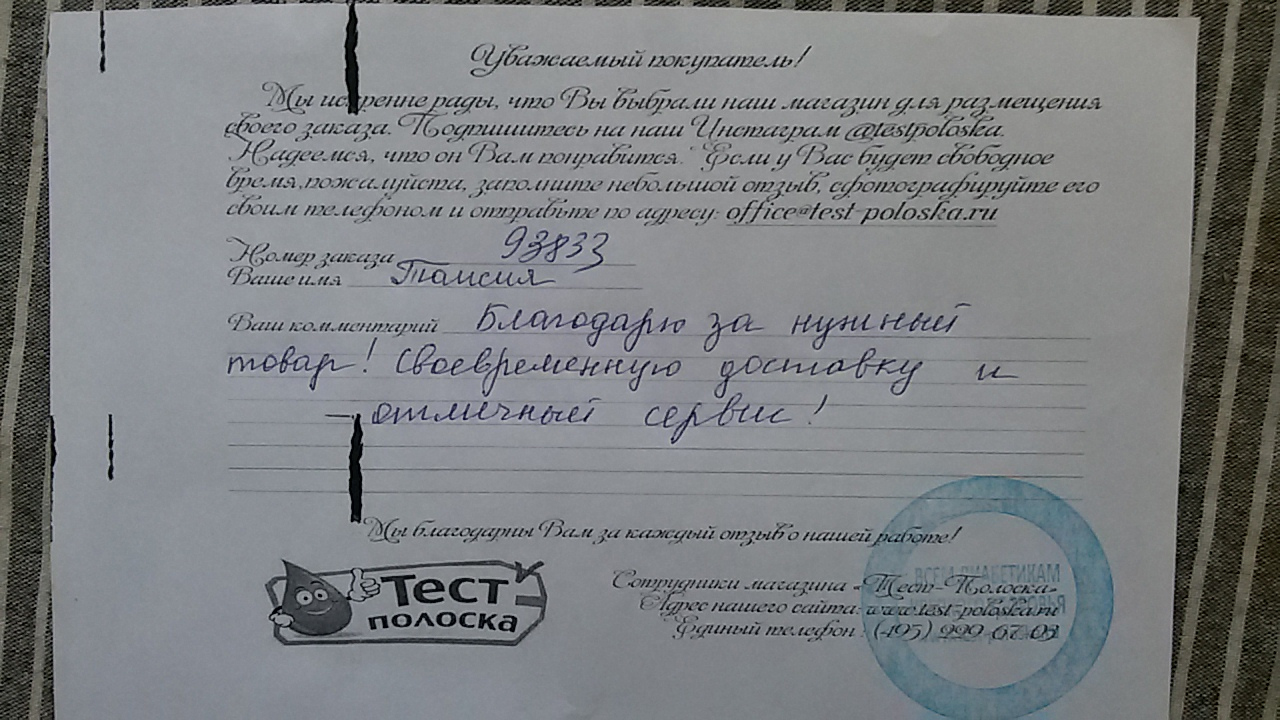 Уважаемый покупатель!
Мы искренне рады, что Вы выбрали наш магазин для размещения
своего заказа. Подпишитесь на наш Инстаграм @testpoloska.
Надеемся, что он Вам понравится. Если у Вас будет свободное
время,пожалуйста, заполните небольшой отзыв, сфотографируйте его
своим телефоном и отправьте по адресу: office@test-poloska.ru
Номер заказа 93833
Ваше имя Таисия
Ваш комментарий Благодарю за нужный
товар! Своевременную доставку и
— отличный сервис!
Мы благодарны Вам за каждый отзыв о нашей работе!
Тест
полоска
Сотрудники магазина «Тест-Полоска»
Адрес нашего сайта: www.test-poloska.ru
Единый телефон : (495) 999-67-03
ВСЕМ ДИАБЕТИКАМ